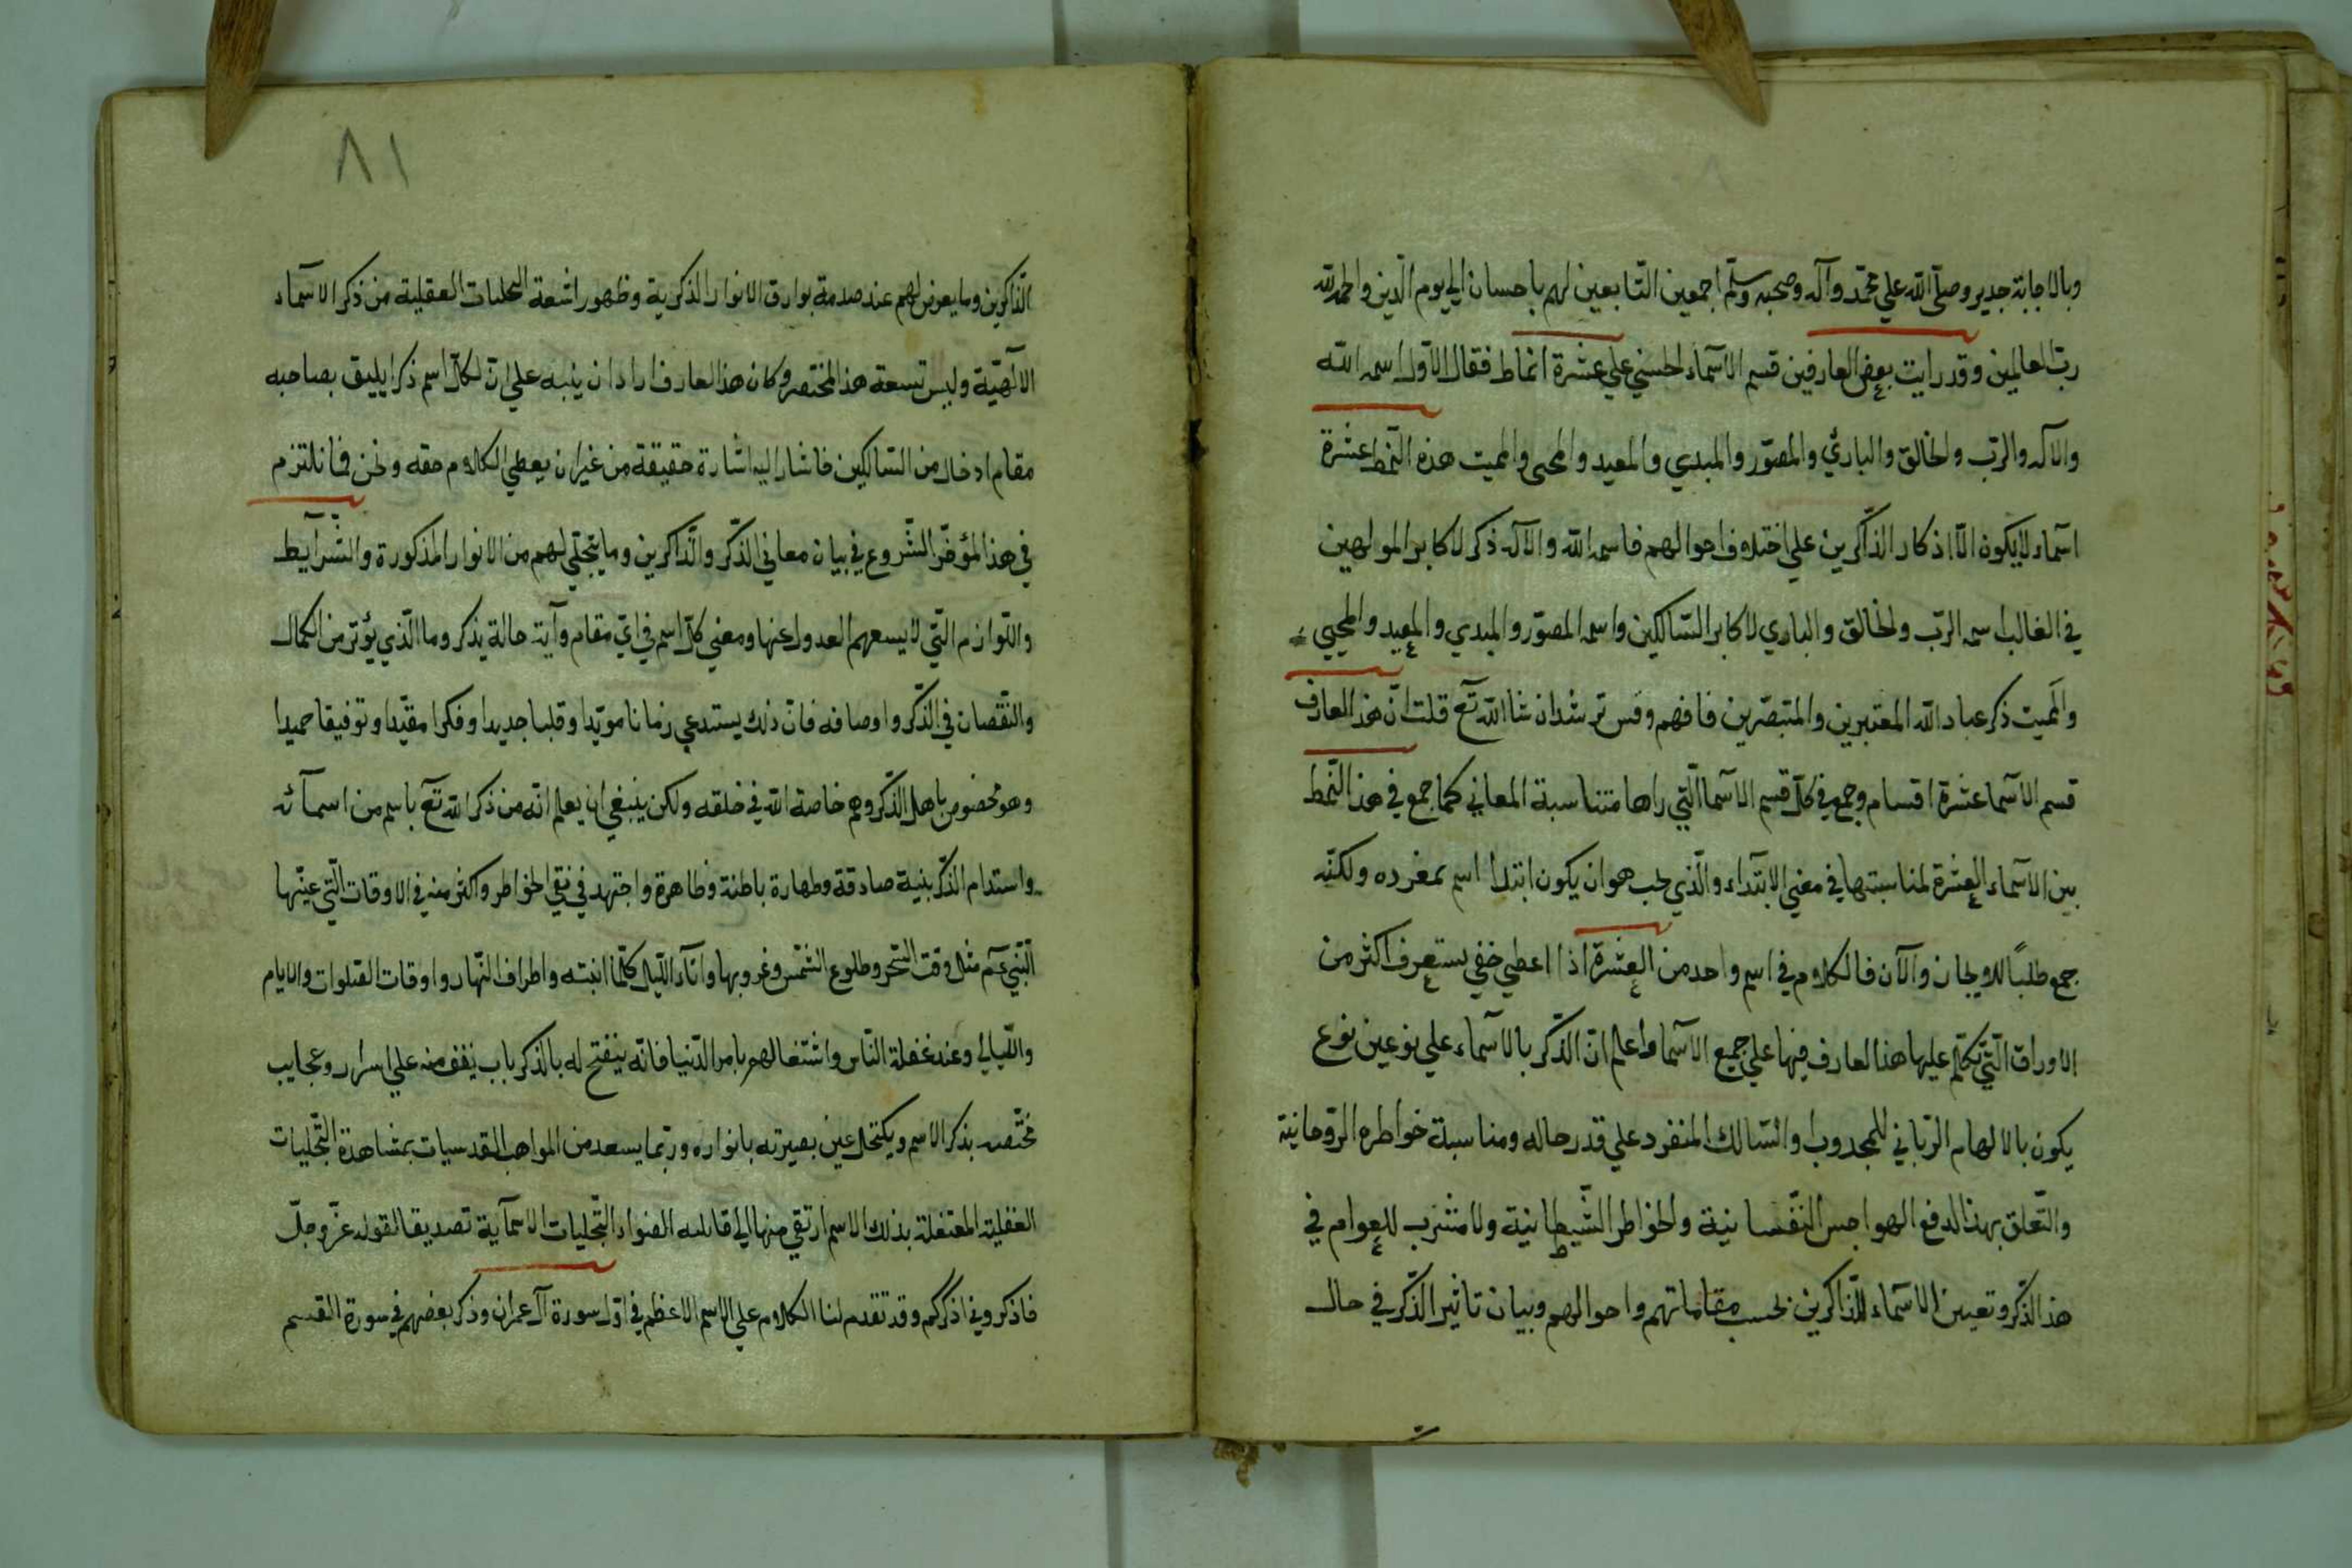 وبالاجابة جدير وصلّي الله علي محمّد وآله وصحبه وسلّم اجمعين التّابعين لهم باحسان الي يوم الدّين والحمد لله
ربّ العالمين وقد رايت بعض العارفين قسم الاسمآء الحسني علي عشرة انماط فقال الاوّل اسمه الله
والاله والربّ والخالق والباريُ والمصوّر والمبدي والمعيد والمحيى والمميت هذه النّمط عشرة
اسمآء لايكون الّا اذكار الذّاكرين علي اختلاف احوالهم فاسمه الله والاله ذكر لاكابر المولهين
في الغالب اسمه الربّ والخالق والباري لاكابر السّالكين واسمه المصوّر والمبدي والمعيد والمحيي
والمميت ذكر عباد الله المعتبرين والمتبصّرين فافهم وقس ترشد ان شا الله تعٓ قلت انّ هذ العارف
قسم الاسمآ عشرة اقسام وجمع في كلّ قسم الاسمآ الّتي راها متناسبة المعاني كما جمع في هذ النّمط
بين الاسمآء العشرة لمناسبتها في معني الابتدآء والّذي يجب هو ان يكون ابتدا اسم بمفرده ولكنّه
جمع طلباً للايجاز والآن فالكلام في اسم واحد من العشرة اذا اعطي حقي يستعرف اكثر من
الاوراق الّتي تكلّم عليها هذا العارف فيها علي جميع الاسمآ واعلم انّ الذّكر بالاسمآء علي نوعين نوع
يكون بالالهام الربّاني للمجدوب والسّالك المنفرد علي قدر حاله ومناسبة خواطره الرّوحانيّة
والتّعلّق بهذ الدفع الهواجس النّفسانية والخواطر الشّيطانية ولا مشرب للعوام في
هذ الذّكر وتعيين الاسمآء للذّاكرين بحسب مقاماتهم واحوالهم وبيان تاثير الذّكر في حال
٨١
الذّاكرين وما يعرض لهم عند صدمة بوارق الانوار الذكرية وظهور اشعة التجليات العقلية من ذكر الاسمآء
الآلهيّة وليس تسعة هذ المختصر وكان هذ العارف اراد ان ينبه علي انّ لكلّ اسم ذكرا يليق بصاحبه
مقام ادخال من السّالكين فاشار اليه اشارة حقيقة من غير ان يعطي الكلام حقه ونحن فانلتزم
في هذ المؤخر الشّروع في بيان معاني الذّكر والذّاكرين وما يتجلّي لهم من الانوار المذكورة والشّرآيط
واللّوازم الّتي لايسعهم العدول عنها ومعني كلّ اسم في ايّ مقام وآية حالة يذكر وما الّذي يؤثر من الكمال
والنّقصان في الذّكر واوصافه فانّ ذلك يستدعي زمانا مويّدا وقلبا جديدا وفكرا مقيّدا وتوفيقا حميدا
وهو مخصوص باهل الذّكر وهم خاصة الله في خلقه ولكن ينبغي ان يعلم انّه من ذكر الله تعٓ باسم من اسمآئه
واستدام الذّكر بنيّة صادقة وطهارة باطنة وظاهرة واجتهد في نفي الخواطر واكثر منه في الاوقات الّتي عيّنها
النّبي عمٓ مثل وقت السّحر وطلوع الشّمس وغروبها وانآء اللّيل كلّما انبته واطراف النّهار واوقات الصّلوات والايام
واللّيالي وعند غفلة النّاس واشتغالهم بامر الدّنيا فانّه ينفتح له بالذكر باب يقف منه علي اسرار وعجايب
مختصه بذكر الاسم ويكتحل عين بصيرته بانواره وربّما يسعد من المواهب القدسيات بمشاهدة التّجليات
العقلية المعتقلة بذلك الاسم ارتقي منها الي التّجليات الاسمآية تصديقا لقوله عزّ وجلّ
فاذكروني اذكركم وقد تقدم لنا الكلام علي الاسم الاعظم في اوّل سورة آل عمران وذكر بعضهم في سورة القسم